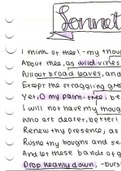 Sonnet
I think of thee!-my thou
About thee, as wild vines
Put out broad leaves, and
Except the straggling gre
Yet, O my palm-tree, be
I will not have my thoug
Who are dearer, better!
Renew thy presence, as
Rustle thy boughs and se
And let these bands of g
Drop heavily down,-burs